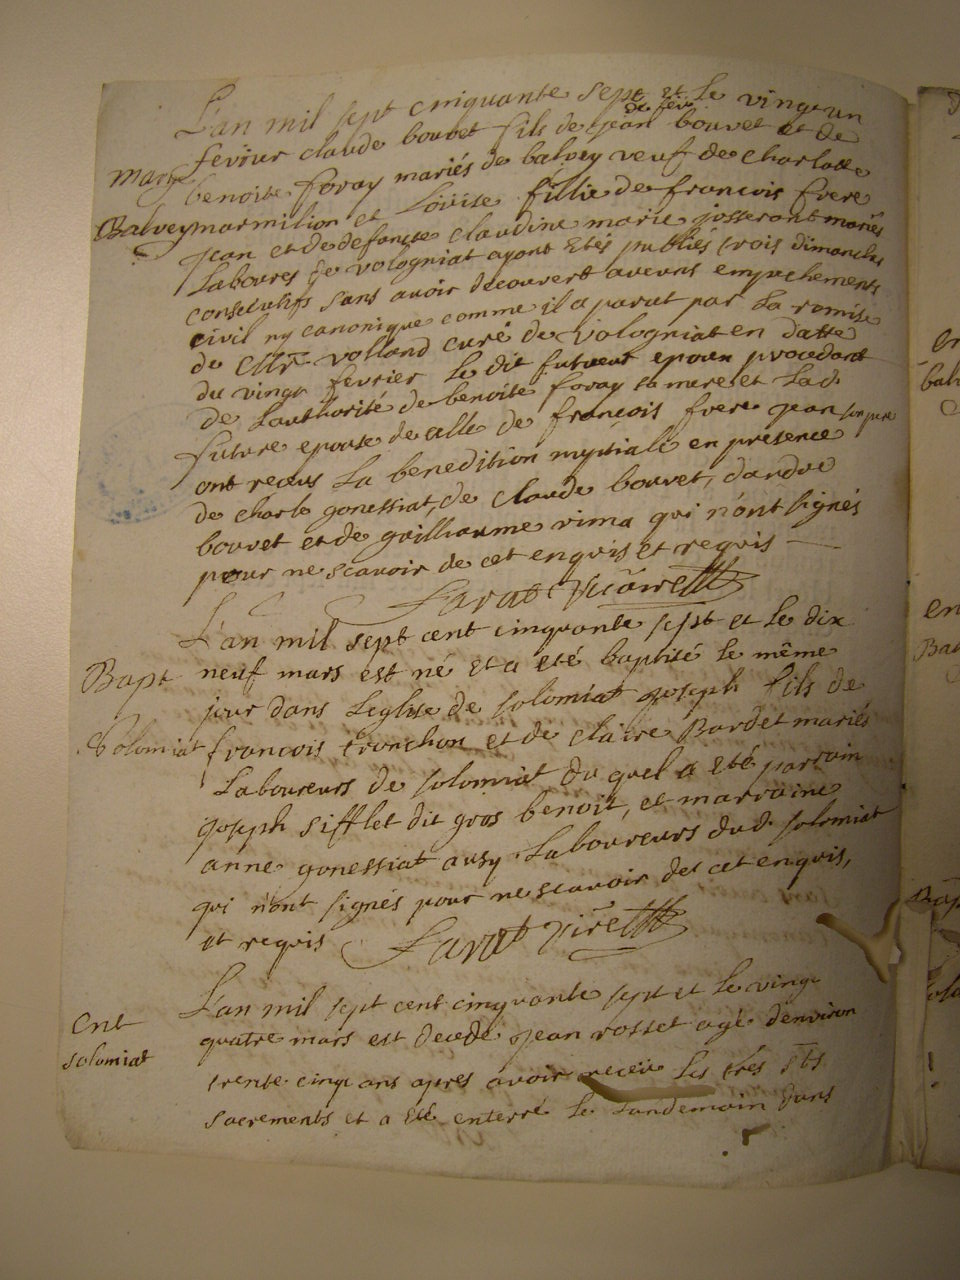 L'an mil sept cinquante sept et le vingt un
fevrier claude bouvet fils de jean bouvet et de
de feu
Mariage
benoite foray mariés de balvey veuf de charlotte
Balvey
marmilion et Loüise fillie de francois frere
jean et de defuncte claudine marie josserant mariés
Laboures de vologniat ayant Etés publiés trois dimanches
consecutifs sans avoir decouvert aucuns empechements
civil ny canonique comme il a parut par La remise
de Mr volland curé de vologniat en datte
du vingt fevrier Le dit futur epoux procedant
de Lauthorité de benoite foray sa mere et La d.
future epouse de celle de francois frere jean son pere
ont recus La benedition nuptiale en presence
de charle gonessiat, de claude bouvet, dandré
bouvet et de guilliaume rima qui n'ont signés
pour ne scavoir de cet enquis et requis
Larat vicaire
L'an mil sept cent cinquante sept et le dix
Bapt
neuf mars est né et a eté baptisé le même
jour dans Leglise de solomiat joseph fils de
Solomiat
francois tronchon et de claire Bardet mariés
Laboureurs de solomiat du quel a eté parrain
joseph sifflet dit gros benoit, et marraine
anne gonessiat ausy Laboureurs dud. solomiat
qui n'ont signés pour ne scavoir de cet enquis,
et requis
Larat vire
L'an mil sept cent cinquante sept et le vingt
Ent
quatre mars est decedé jean rosset agé denviron
solomiat
trente cinq ans apres avoir receü Les trés Sts
sacrements et a eté enterré Le Landemain dans